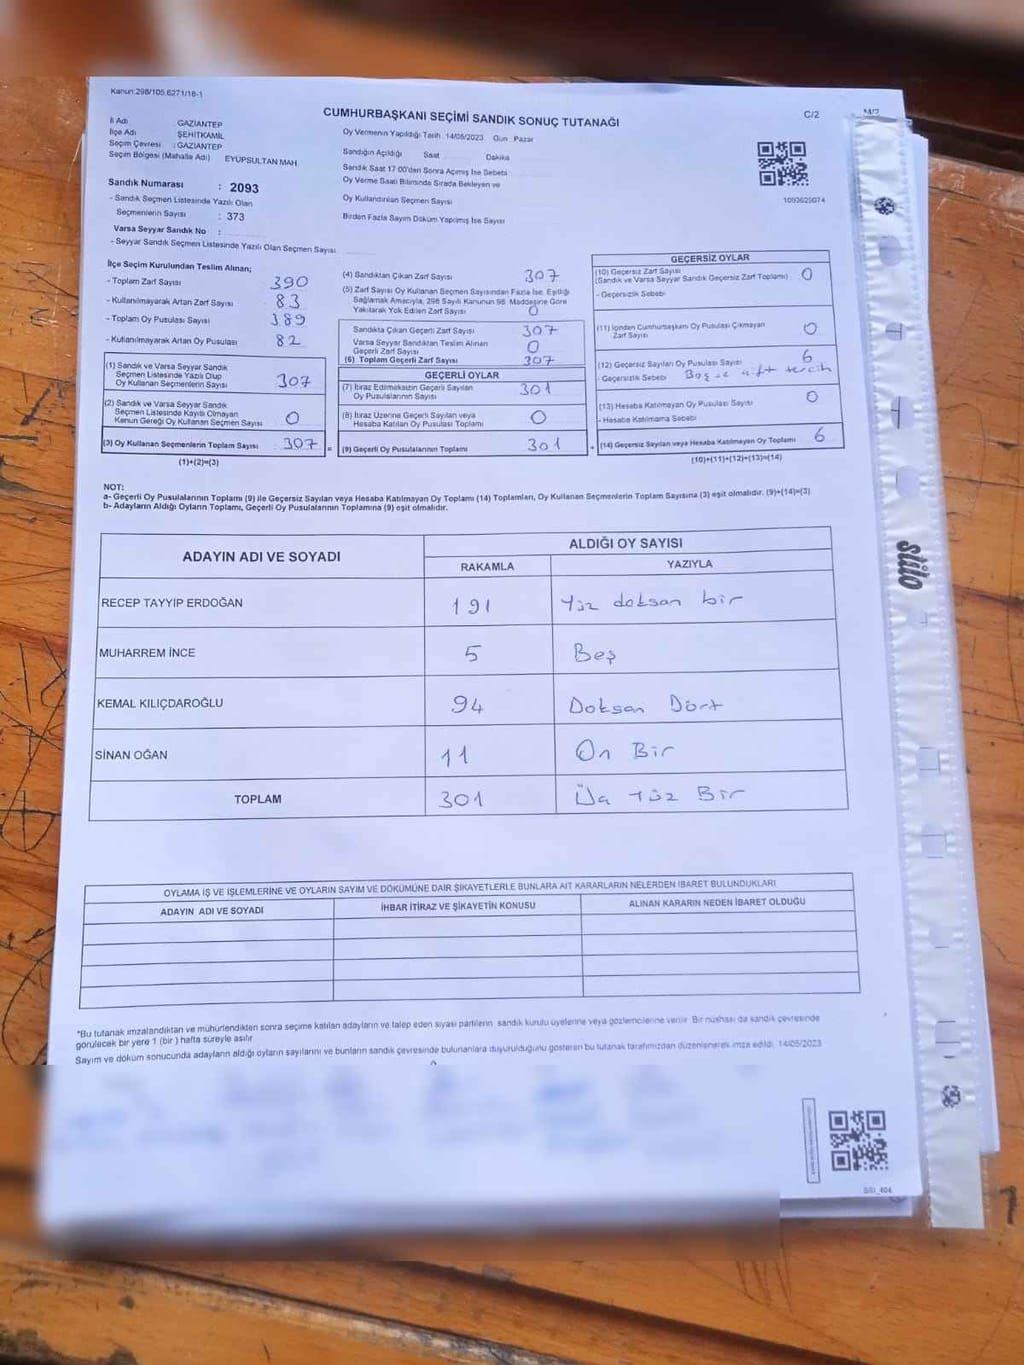 Kanun:298/105.6271/18-1
CUMHURBAŞKANI SEÇİMİ SANDIK SONUÇ TUTANAĞI
C/2
İl Adı GAZİANTEP
İlçe Adı ŞEHİTKAMİL
Seçim Çevresi : GAZİANTEP
Seçim Bölgesi (Mahalle Adı) EYÜPSULTAN MAH.
Oy Vermenin Yapıldığı Tarih : 14/05/2023 Gün : Pazar
Sandığın Açıldığı Saat Dakika
Sandık Saat 17:00'den Sonra Açılmış İse Sebebi
Oy Verme Saati Bitiminde Sırada Bekleyen ve
Oy Kullandırılan Seçmen Sayısı
Birden Fazla Sayım Döküm Yapılmış İse Sayısı
1093629074
Sandık Numarası : 2093
- Sandık Seçmen Listesinde Yazılı Olan
Seçmenlerin Sayısı : 373
Varsa Seyyar Sandık No :
- Seyyar Sandık Seçmen Listesinde Yazılı Olan Seçmen Sayısı
İlçe Seçim Kurulundan Teslim Alınan;
- Toplam Zarf Sayısı 390
- Kullanılmayarak Artan Zarf Sayısı 83
- Toplam Oy Pusulası Sayısı 389
- Kullanılmayarak Artan Oy Pusulası 82
(1) Sandık ve Varsa Seyyar Sandık
Seçmen Listesinde Yazılı Olup
Oy Kullanan Seçmenlerin Sayısı 307
(2) Sandık ve Varsa Seyyar Sandık
Seçmen Listesinde Kayıtlı Olmayan
Kanun Gereği Oy Kullanan Seçmen Sayısı 0
(3) Oy Kullanan Seçmenlerin Toplam Sayısı 307
(1)+(2)=(3)
(4) Sandıktan Çıkan Zarf Sayısı 307
(5) Zarf Sayısı Oy Kullanan Seçmen Sayısından Fazla İse, Eşitliği
Sağlamak Amacıyla, 298 Sayılı Kanunun 98. Maddesine Göre
Yakılarak Yok Edilen Zarf Sayısı 0
Sandıkta Çıkan Geçerli Zarf Sayısı 307
Varsa Seyyar Sandıktan Teslim Alınan
Geçerli Zarf Sayısı 0
(6) Toplam Geçerli Zarf Sayısı 307
GEÇERLİ OYLAR
(7) İtiraz Edilmeksizin Geçerli Sayılan
Oy Pusulalarının Sayısı 301
(8) İtiraz Üzerine Geçerli Sayılan veya
Hesaba Katılan Oy Pusulası Toplamı 0
= (9) Geçerli Oy Pusulalarının Toplamı 301
GEÇERSİZ OYLAR
(10) Geçersiz Zarf Sayısı
(Sandık ve Varsa Seyyar Sandık Geçersiz Zarf Toplamı) 0
- Geçersizlik Sebebi
(11) İçinden Cumhurbaşkanı Oy Pusulası Çıkmayan
Zarf Sayısı 0
(12) Geçersiz Sayılan Oy Pusulası Sayısı 6
- Geçersizlik Sebebi Boş ve çift tercih
(13) Hesaba Katılmayan Oy Pusulası Sayısı 0
- Hesaba Katılmama Sebebi
+ (14) Geçersiz Sayılan veya Hesaba Katılmayan Oy Toplamı 6
(10)+(11)+(12)+(13)=(14)
NOT:
a- Geçerli Oy Pusulalarının Toplamı (9) ile Geçersiz Sayılan veya Hesaba Katılmayan Oy Toplamı (14) Toplamları, Oy Kullanan Seçmenlerin Toplam Sayısına (3) eşit olmalıdır. (9)+(14)=(3)
b- Adayların Aldığı Oyların Toplamı, Geçerli Oy Pusulalarının Toplamına (9) eşit olmalıdır.
ADAYIN ADI VE SOYADI ALDIĞI OY SAYISI
RAKAMLA YAZIYLA
RECEP TAYYİP ERDOĞAN 191 Yüz doksan bir
MUHARREM İNCE 5 Beş
KEMAL KILIÇDAROĞLU 94 Doksan Dört
SİNAN OĞAN 11 On Bir
TOPLAM 301 Üç Yüz Bir
OYLAMA İŞ VE İŞLEMLERİNE VE OYLARIN SAYIM VE DÖKÜMÜNE DAİR ŞİKAYETLERLE BUNLARA AİT KARARLARIN NELERDEN İBARET BULUNDUKLARI
ADAYIN ADI VE SOYADI İHBAR İTİRAZ VE ŞİKAYETİN KONUSU ALINAN KARARIN NEDEN İBARET OLDUĞU
*Bu tutanak imzalandıktan ve mühürlendikten sonra seçime katılan adayların ve talep eden siyasi partilerin sandık kurulu üyelerine veya gözlemcilerine verilir. Bir nüshası da sandık çevresinde
görülecek bir yere 1 (bir) hafta süreyle asılır
Sayım ve döküm sonucunda adayların aldığı oyların sayılarını ve bunların sandık çevresinde bulunanlara duyurulduğunu gösteren bu tutanak tarafımızdan düzenlenerek imza edildi. 14/05/2023
süto